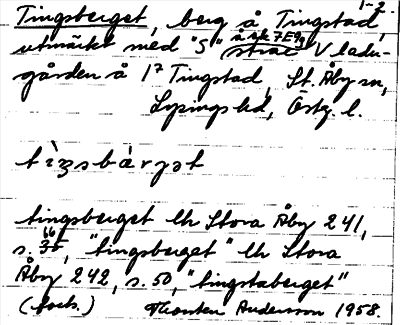 1-2.
Tingsberget, berg å Tingstad,
utmärkt med "S" å ek 7E9g strax V ladu-
gården å 1² Tingstad, St. Åby sn,
Lysings hd, Östg. l.
tìŋsbàrjət
tingsberget lh Stora Åby 241,
s. 66, "tingsberget" lh Stora
Åby 242, s. 50, "tingstaberget"
(forts.) Thorsten Andersson 1958.